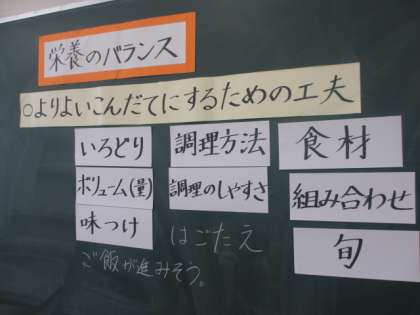 栄養のバランス
○よりよいこんだてにするための工夫
いろどり
調理方法
食材
ボリューム(量)
調理のしやすさ
組み合わせ
味つけ
はごたえ
旬
ご飯が進みそう。